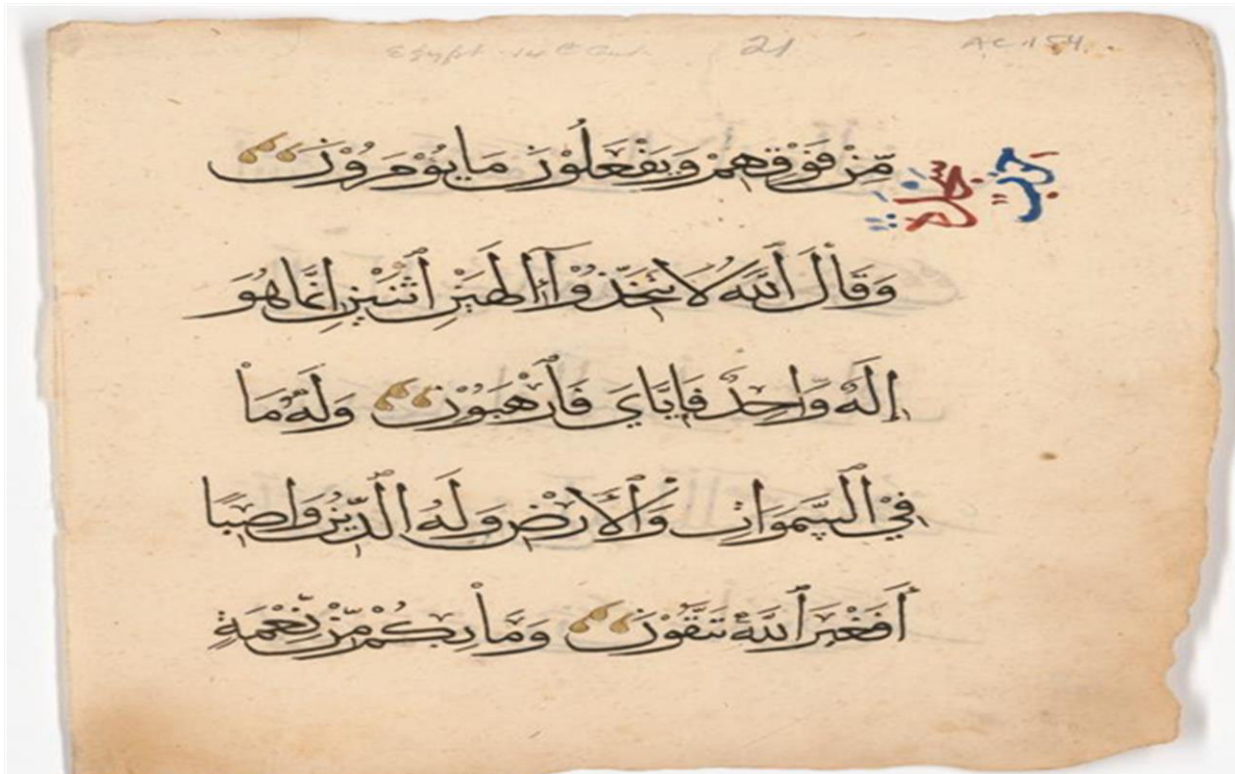 Egypt - 14th Cent. 21 AC.154.
مِّنْ فَوْقِهِمْ وَيَفْعَلُوْنَ مَا يُؤْمَرُوْنَ
حزب
سجدة
وَقَالَ ٱللَّهُ لَا تَتَّخِذُوْٓا إِلَهَيْنِ ٱثْنَيْنِ إِنَّمَا هُوَ
إِلَهٌ وَاحِدٌ فَإِيَّايَ فَٱرْهَبُوْنِ وَلَهُ مَا
فِيْ ٱلسَّمَوَاتِ وَٱلْأَرْضِ وَلَهُ ٱلدِّيْنُ وَاصِبًا
أَفَغَيْرَ ٱللَّهِ تَتَّقُوْنَ وَمَا بِكُمْ مِّنْ نِّعْمَةٍ